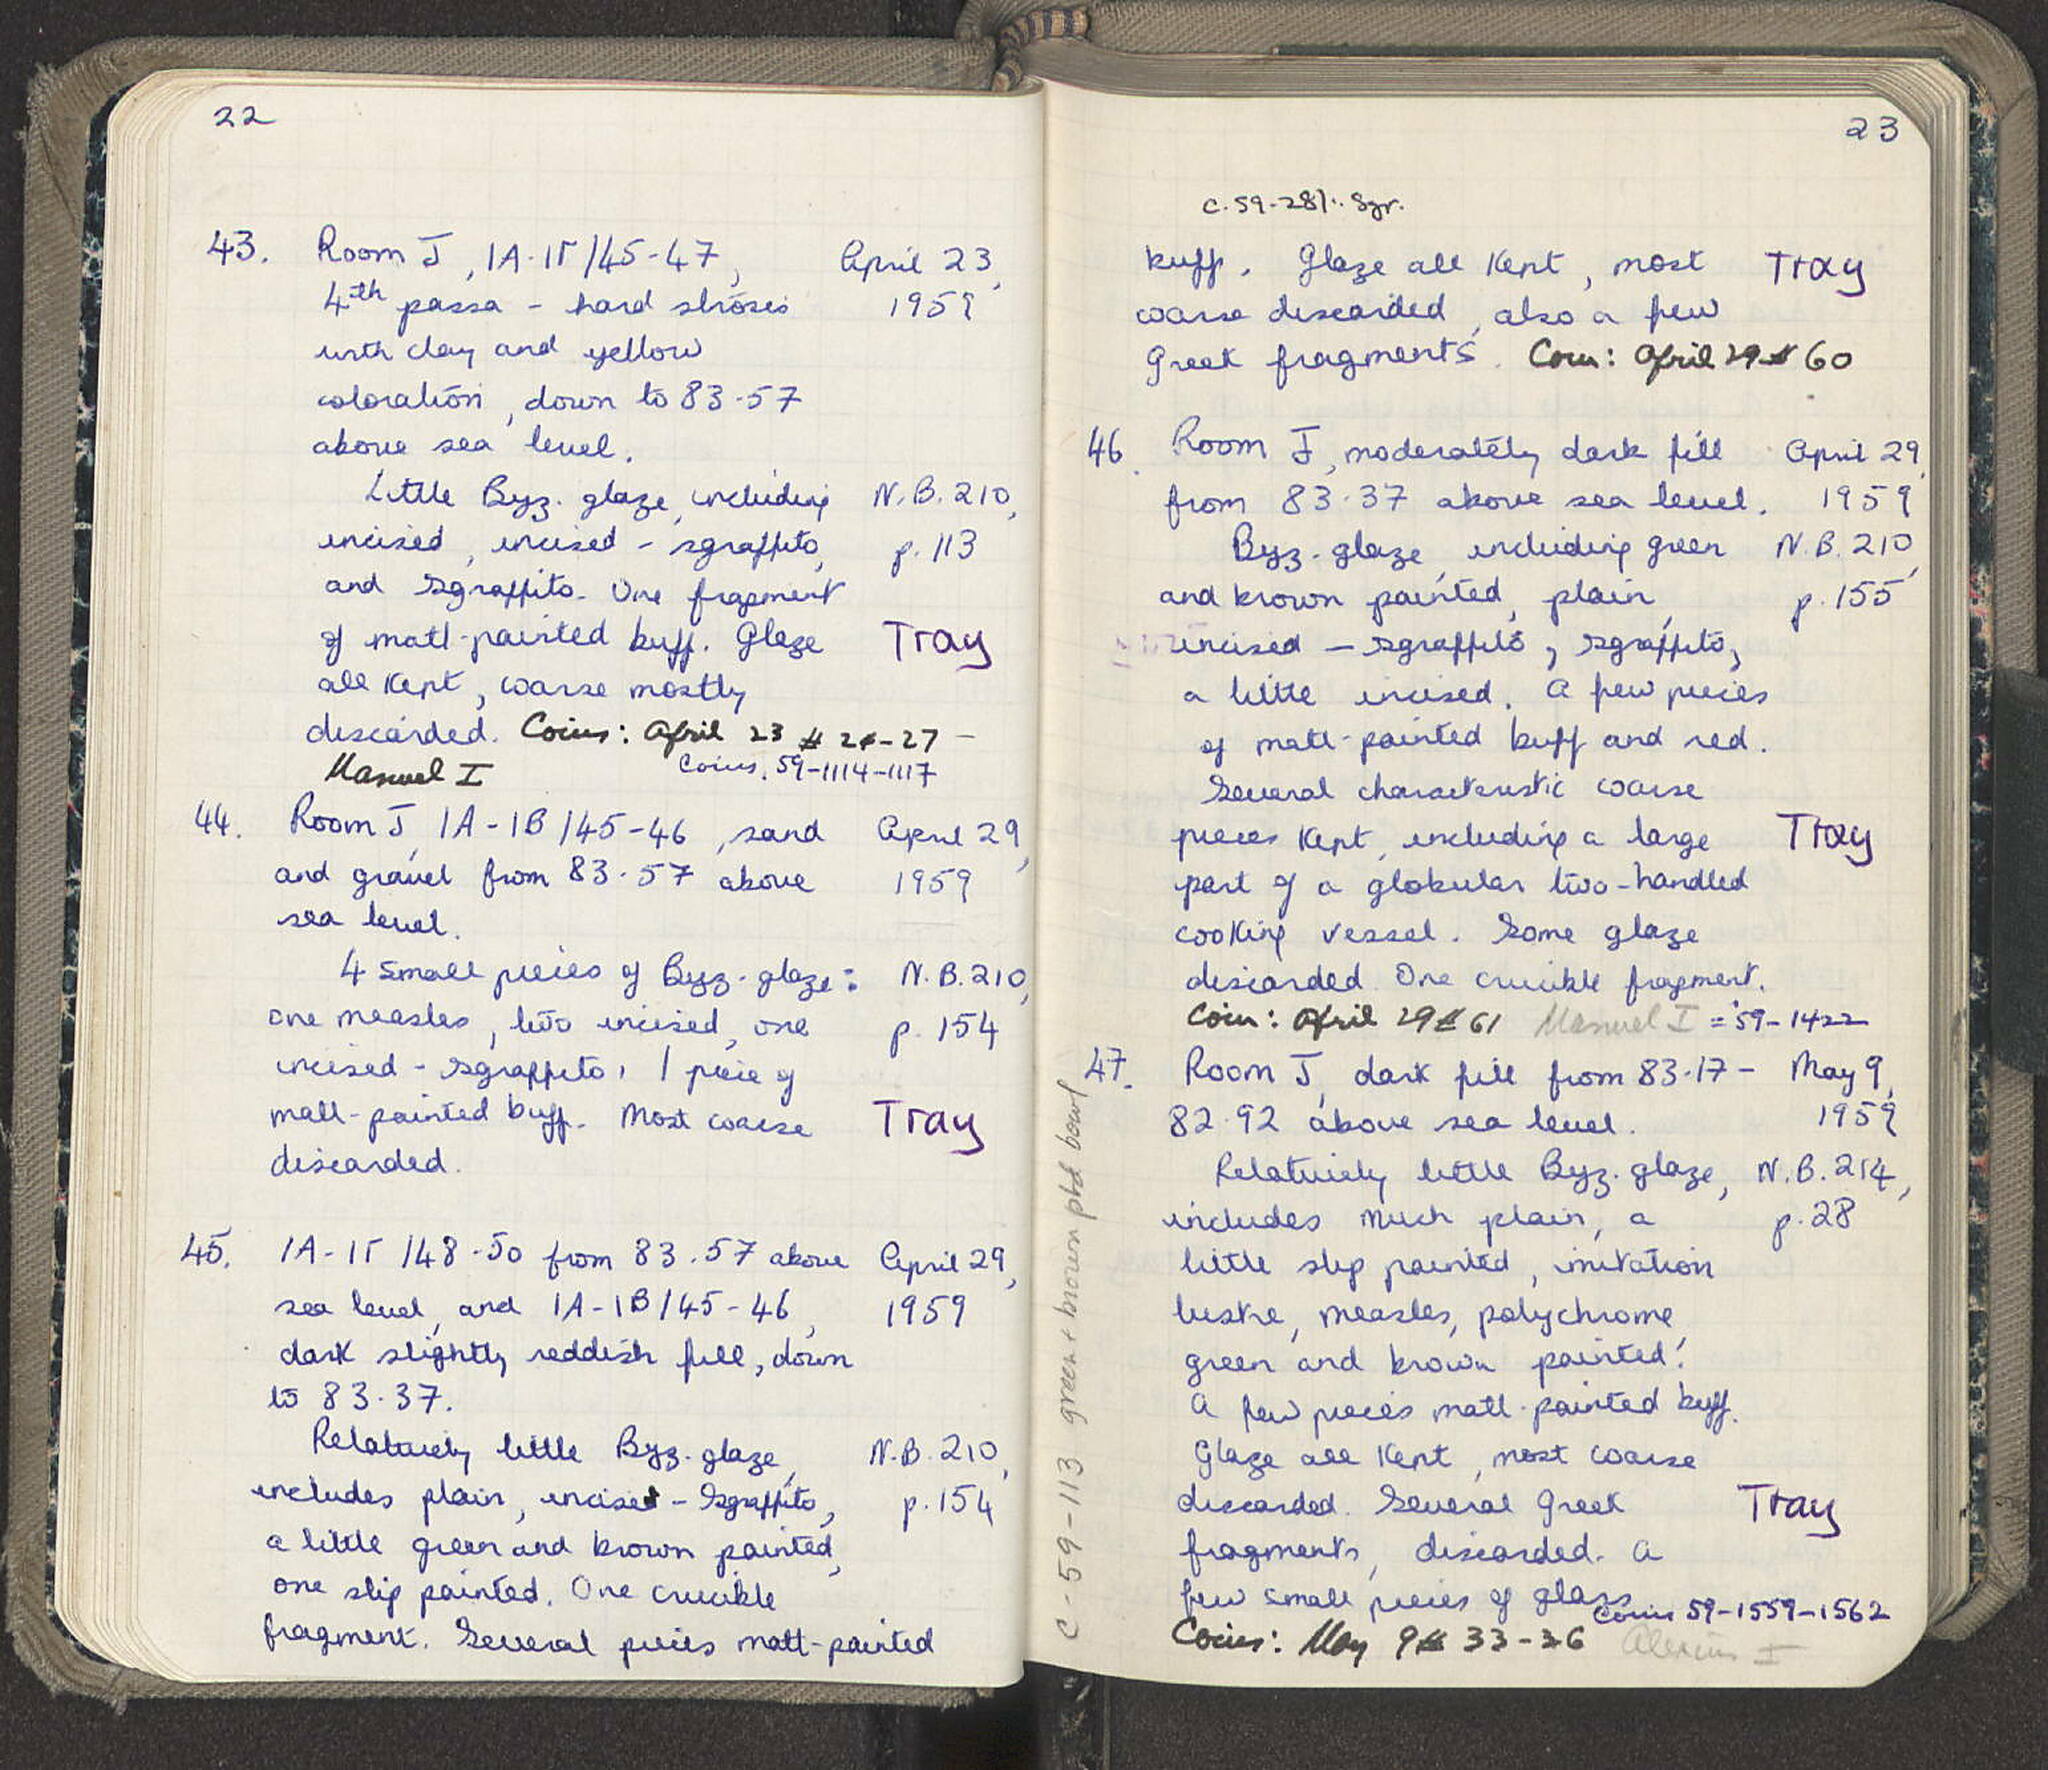 22
43. Room J, 1A-1Γ/45-47, April 23,
4th passa - hard strosis 1959
with clay and yellow
coloration, down to 83.57
above sea level.
Little Byz. glaze, including N.B. 210,
incised, incised - sgraffito, p. 113
and sgraffito. One fragment
of matt-painted buff. Glaze Tray
all kept, coarse mostly
discarded. Coins: April 23 # 24-27 -
Manuel I Coins. 59-1114-1117
44. Room J, 1A-1B/45-46, sand April 29,
and gravel from 83.57 above 1959
sea level.
4 small pieces of Byz. glaze: N.B. 210,
one measles, two incised, one p. 154
incised - sgraffito, 1 piece of
matt-painted buff. Most coarse Tray
discarded.
45. 1A-1Γ/48-50 from 83.57 above April 29,
sea level, and 1A-1B/45-46, 1959
dark slightly reddish fill, down
to 83.37.
Relatively little Byz. glaze, N.B. 210,
includes plain, incised - sgraffito, p. 154
a little green and brown painted,
one slip painted. One crucible
fragment. Several pieces matt-painted
23
C.59-281: Sgr.
buff. Glaze all kept, most Tray
coarse discarded, also a few
Greek fragments. Coin: April 29 # 60
46. Room J, moderately dark fill April 29,
from 83.37 above sea level. 1959
Byz. glaze, including green N.B. 210,
and brown painted, plain, p. 155
incised - sgraffito, sgraffito,
a little incised. A few pieces
of matt-painted buff and red.
Several characteristic coarse
pieces kept, including a large Tray
part of a globular two-handled
cooking vessel. Some glaze
discarded. One crucible fragment.
Coin: April 29 # 61 Manuel I = 59-1422
47. Room J, dark fill from 83.17 - May 9,
82.92 above sea level. 1959
Relatively little Byz. glaze, N.B. 214,
includes much plain, a p. 28
little slip painted, imitation
lustre, measles, polychrome,
green and brown painted.
A few pieces matt-painted buff.
Glaze all kept, most coarse
discarded. Several Greek Tray
fragments, discarded. A
few small pieces of glass
Coins 59-1559-1562
Coins: May 9 # 33-36 Alexius I
C-59-113 green + brown ptd bowl